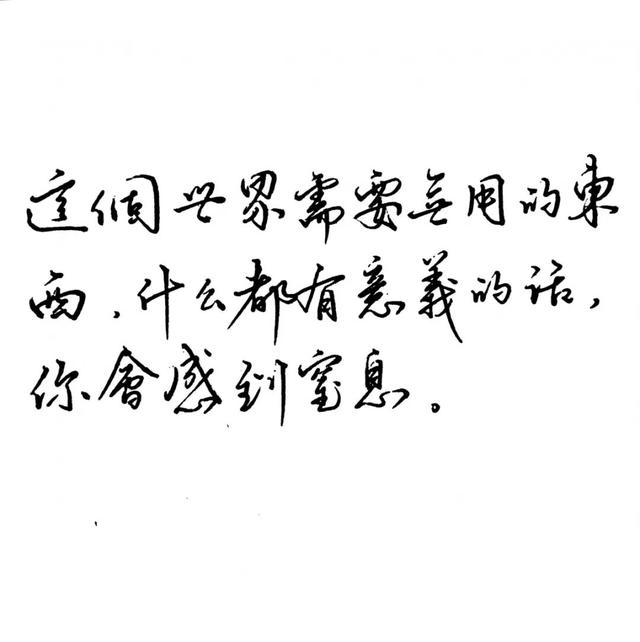 這個世界需要無用的東
西，什么都有意義的话，
你會感到窒息。